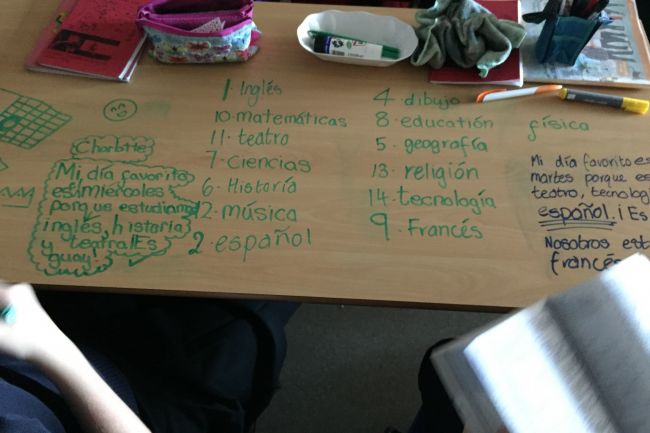 Charlotte
Mi día favorito
es miércoles
porque estudiamos
inglés, historia
y teatro! Es
guay!
1 Inglés
10. matemáticas
11. teatro
7. Ciencias
6. Historia
12. música
2. español
4. dibujo
8. educatión
5. geografía
13. religión
14. tecnología
9. Francés
física
Mi día favorito es
martes porque es
teatro, tecnolog
español. ¡Es
Nosotros est
francés